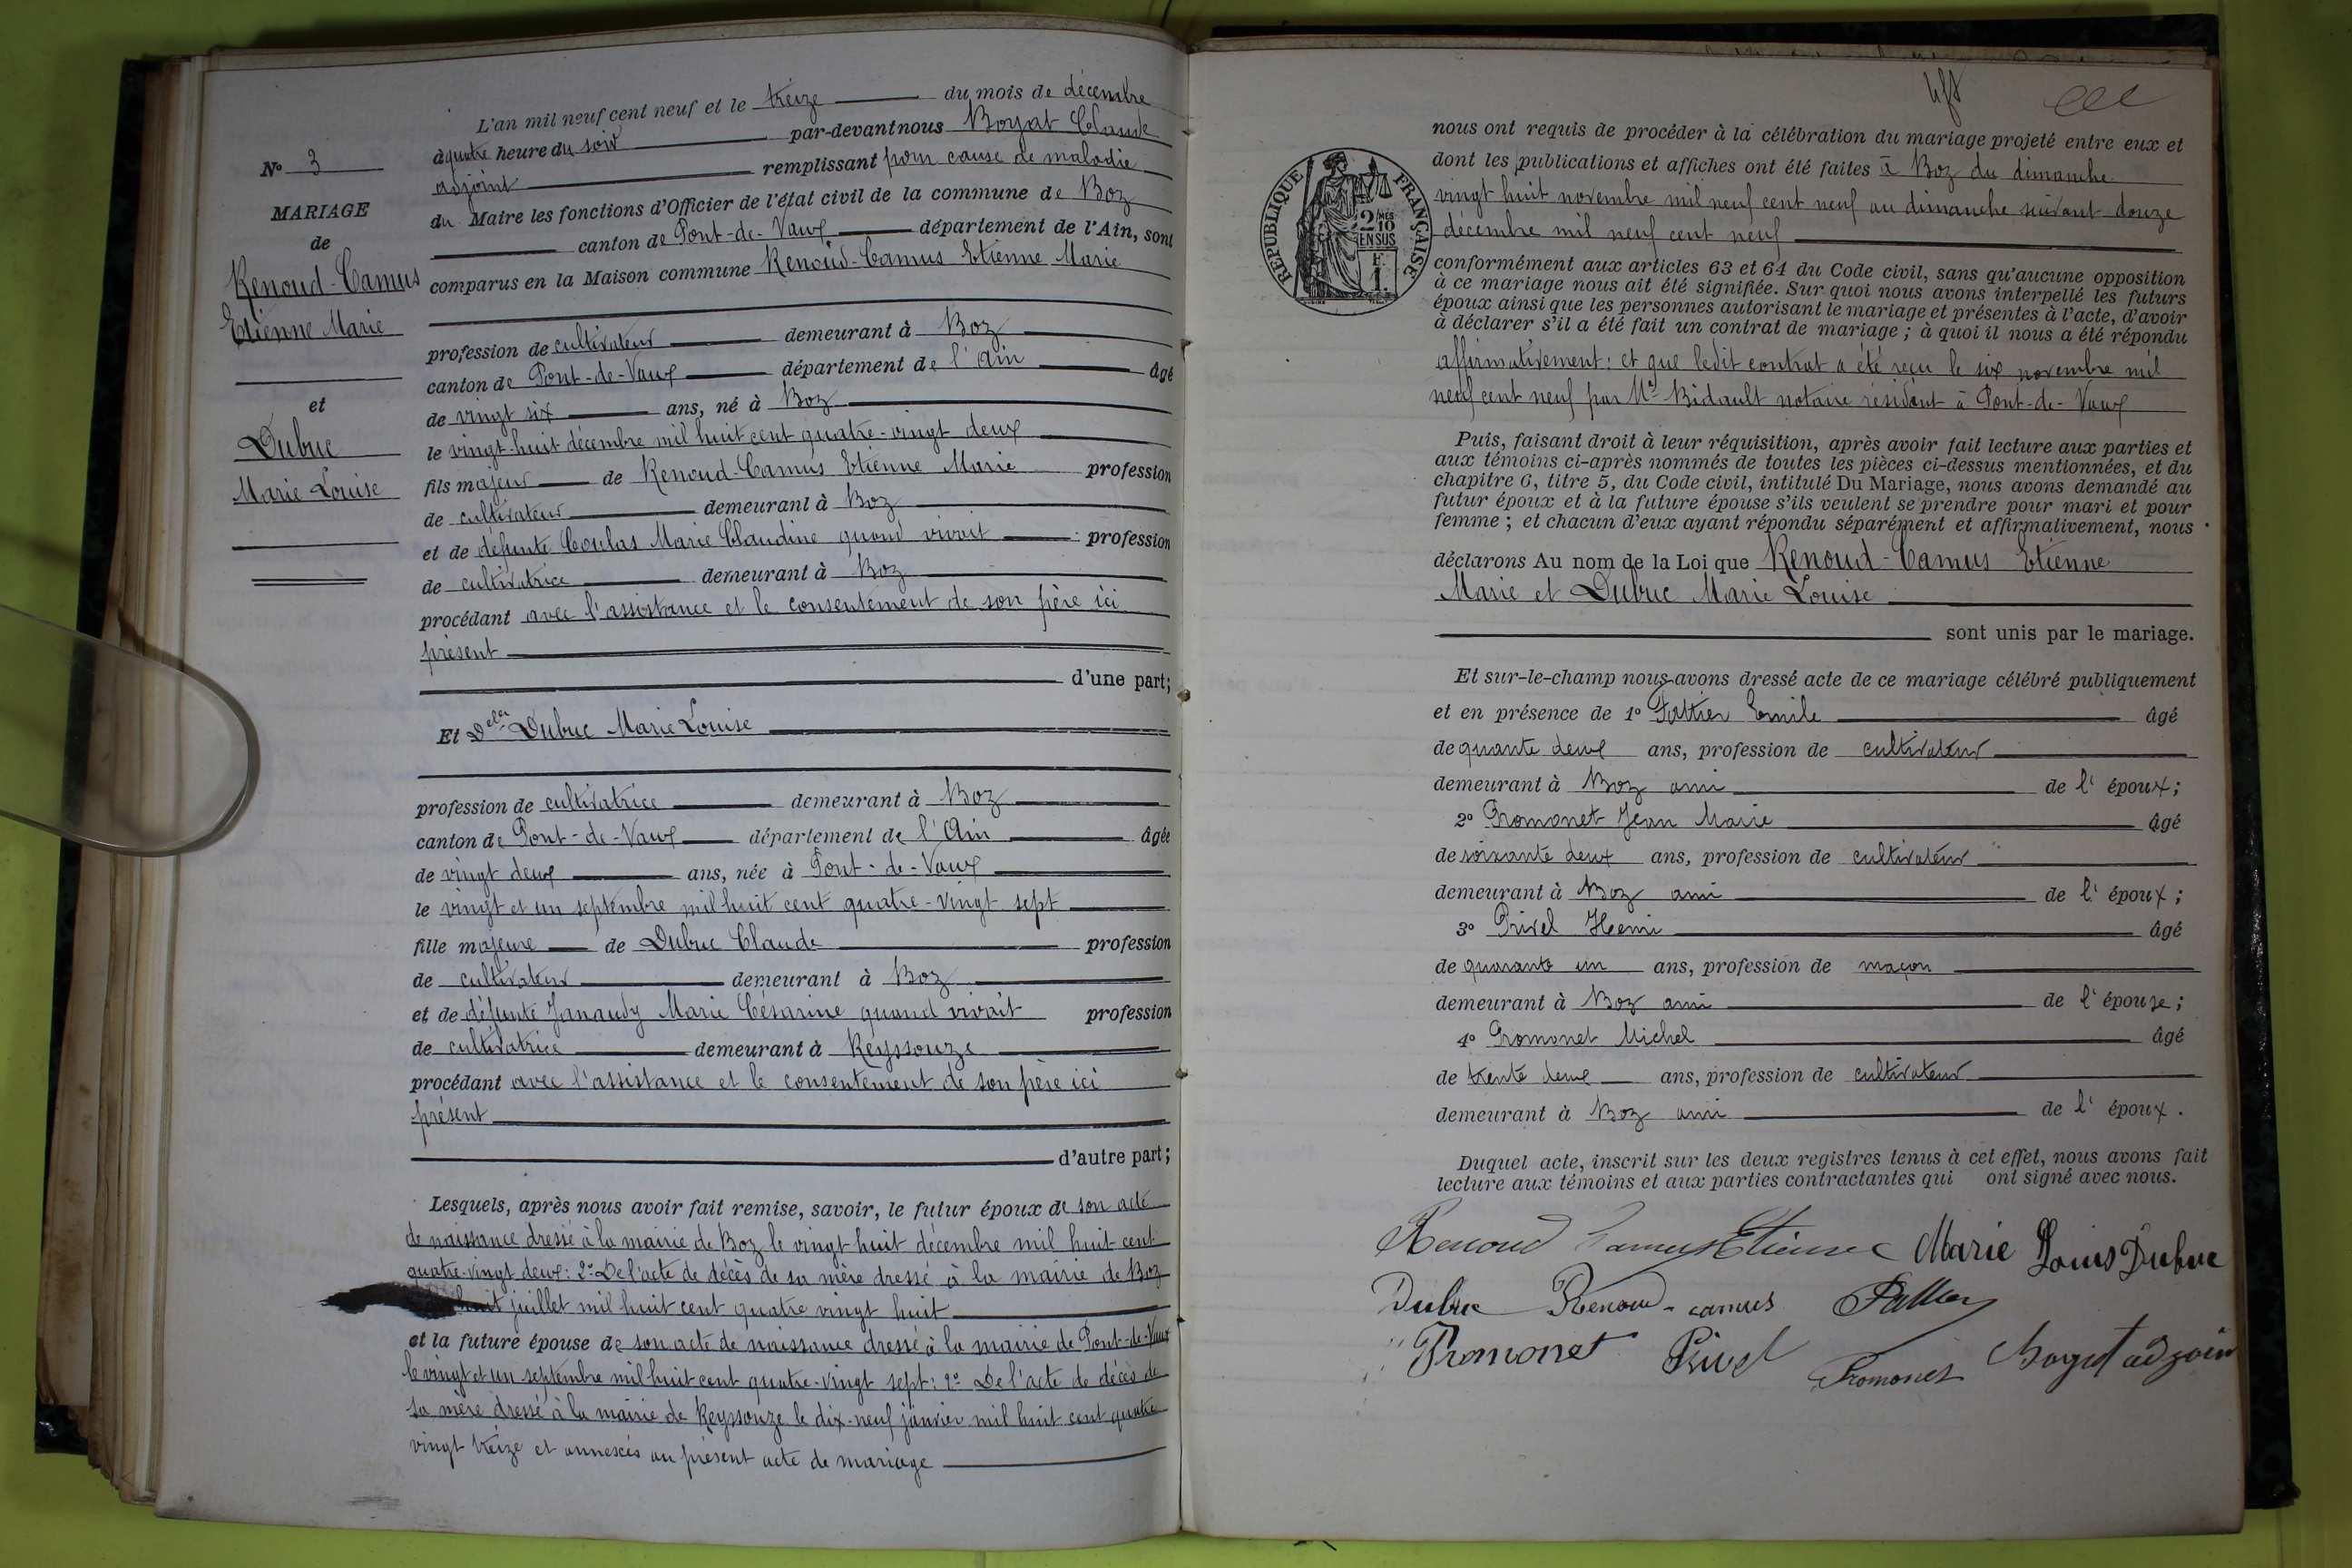 L'an mil neuf cent neuf et le treize du mois de décembre
à quatre heure du soir par-devant nous Boyat Claude
adjoint remplissant pour cause de maladie
du Maire les fonctions d'Officier de l'état civil de la commune de Boz
canton de Pont-de-Vaux département de l'Ain, sont
comparus en la Maison commune Renoud-Camus Etienne Marie
profession de cultivateur demeurant à Boz
canton de Pont-de-Vaux département de l'Ain âgé
de vingt six ans, né à Boz
le vingt-huit décembre mil huit cent quatre-vingt deux
fils majeur de Renoud-Camus Etienne Marie profession
de cultivateur demeurant à Boz
et de défunte Coulas Marie Claudine quand vivait profession
de cultivatrice demeurant à Boz
procédant avec l'assistance et le consentement de son père ici
présent
d'une part;
Et Delle Dubuc Marie Louise
profession de cultivatrice demeurant à Boz
canton de Pont-de-Vaux département de l'Ain âgée
de vingt deux ans, née à Pont-de-Vaux
le vingt et un septembre mil huit cent quatre-vingt sept
fille majeure de Dubuc Claude profession
de cultivateur demeurant à Boz
et de défunte Janaudy Marie Césarine quand vivait profession
de cultivatrice demeurant à Reyssouze
procédant avec l'assistance et le consentement de son père ici
présent
d'autre part;
Lesquels, après nous avoir fait remise, savoir, le futur époux de son acte
de naissance dressé à la mairie de Boz le vingt huit décembre mil huit cent
quatre-vingt deux: 2° De l'acte de décès de sa mère dressé à la mairie de Boz
huit juillet mil huit cent quatre vingt huit
et la future épouse de son acte de naissance dressé à la mairie de Pont-de-Vaux
le vingt et un septembre mil huit cent quatre-vingt sept: 2° De l'acte de décès de
sa mère dressé à la mairie de Reyssouze le dix-neuf janvier mil huit cent quatre
vingt treize et annexés au présent acte de mariage
N° 3
MARIAGE
de
Renoud-Camus
Etienne Marie
et
Dubuc
Marie Louise
nous ont requis de procéder à la célébration du mariage projeté entre eux et
dont les publications et affiches ont été faites à Boz du dimanche
vingt huit novembre mil neuf cent neuf au dimanche suivant douze
décembre mil neuf cent neuf
conformément aux articles 63 et 64 du Code civil, sans qu'aucune opposition
à ce mariage nous ait été signifiée. Sur quoi nous avons interpellé les futurs
époux ainsi que les personnes autorisant le mariage et présentes à l'acte, d'avoir
à déclarer s'il a été fait un contrat de mariage; à quoi il nous a été répondu
affirmativement: et que ledit contrat a été reçu le six novembre mil
neuf cent neuf par Me Bidault notaire résidant à Pont-de-Vaux
Puis, faisant droit à leur réquisition, après avoir fait lecture aux parties et
aux témoins ci-après nommés de toutes les pièces ci-dessus mentionnées, et du
chapitre 6, titre 5, du Code civil, intitulé Du Mariage, nous avons demandé au
futur époux et à la future épouse s'ils veulent se prendre pour mari et pour
femme; et chacun d'eux ayant répondu séparément et affirmativement, nous
déclarons Au nom de la Loi que Renoud-Camus Etienne
Marie et Dubuc Marie Louise
sont unis par le mariage.
Et sur-le-champ nous avons dressé acte de ce mariage célébré publiquement
et en présence de 1° Emile âgé
de quante deux ans, profession de cultivateur
demeurant à Boz ami de l' époux;
2° Promonet Jean Marie âgé
de soixante deux ans, profession de cultivateur
demeurant à Boz ami de l' époux;
3° Privel Henri âgé
de quarante un ans, profession de maçon
demeurant à Boz ami de l' épouse;
4° Promonet Michel âgé
de trente deux ans, profession de cultivateur
demeurant à Boz ami de l' époux.
Duquel acte, inscrit sur les deux registres tenus à cet effet, nous avons fait
lecture aux témoins et aux parties contractantes qui ont signé avec nous.
Renoud Camus Etienne Marie Louis Dubuc
Dubuc Renoud-camus
Promonet Privel Promonet Boyat adjoin
RÉPUBLIQUE FRANÇAISE
2/10 MES
EN SUS
F.
1.